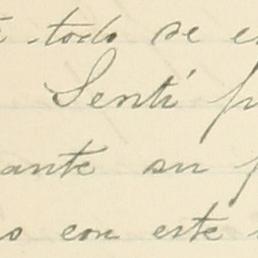 todo se
Sentí
ante su
con este